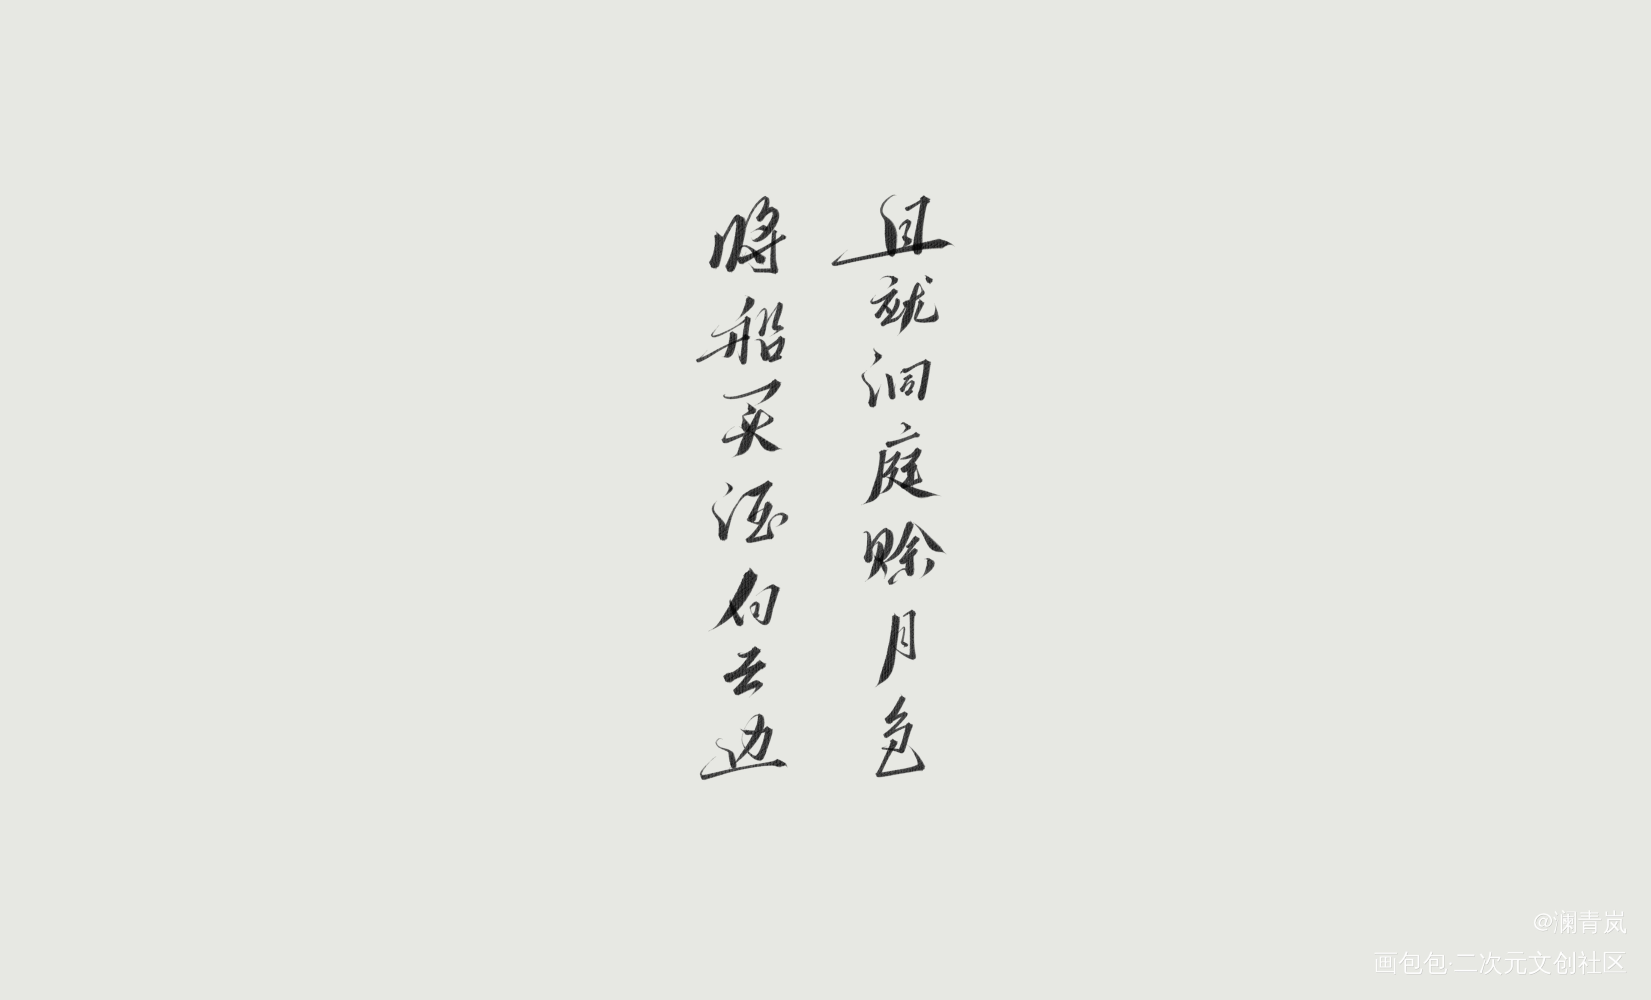 且就洞庭赊月色
将船买酒白云边
@澜青岚
画包包·二次元文创社区